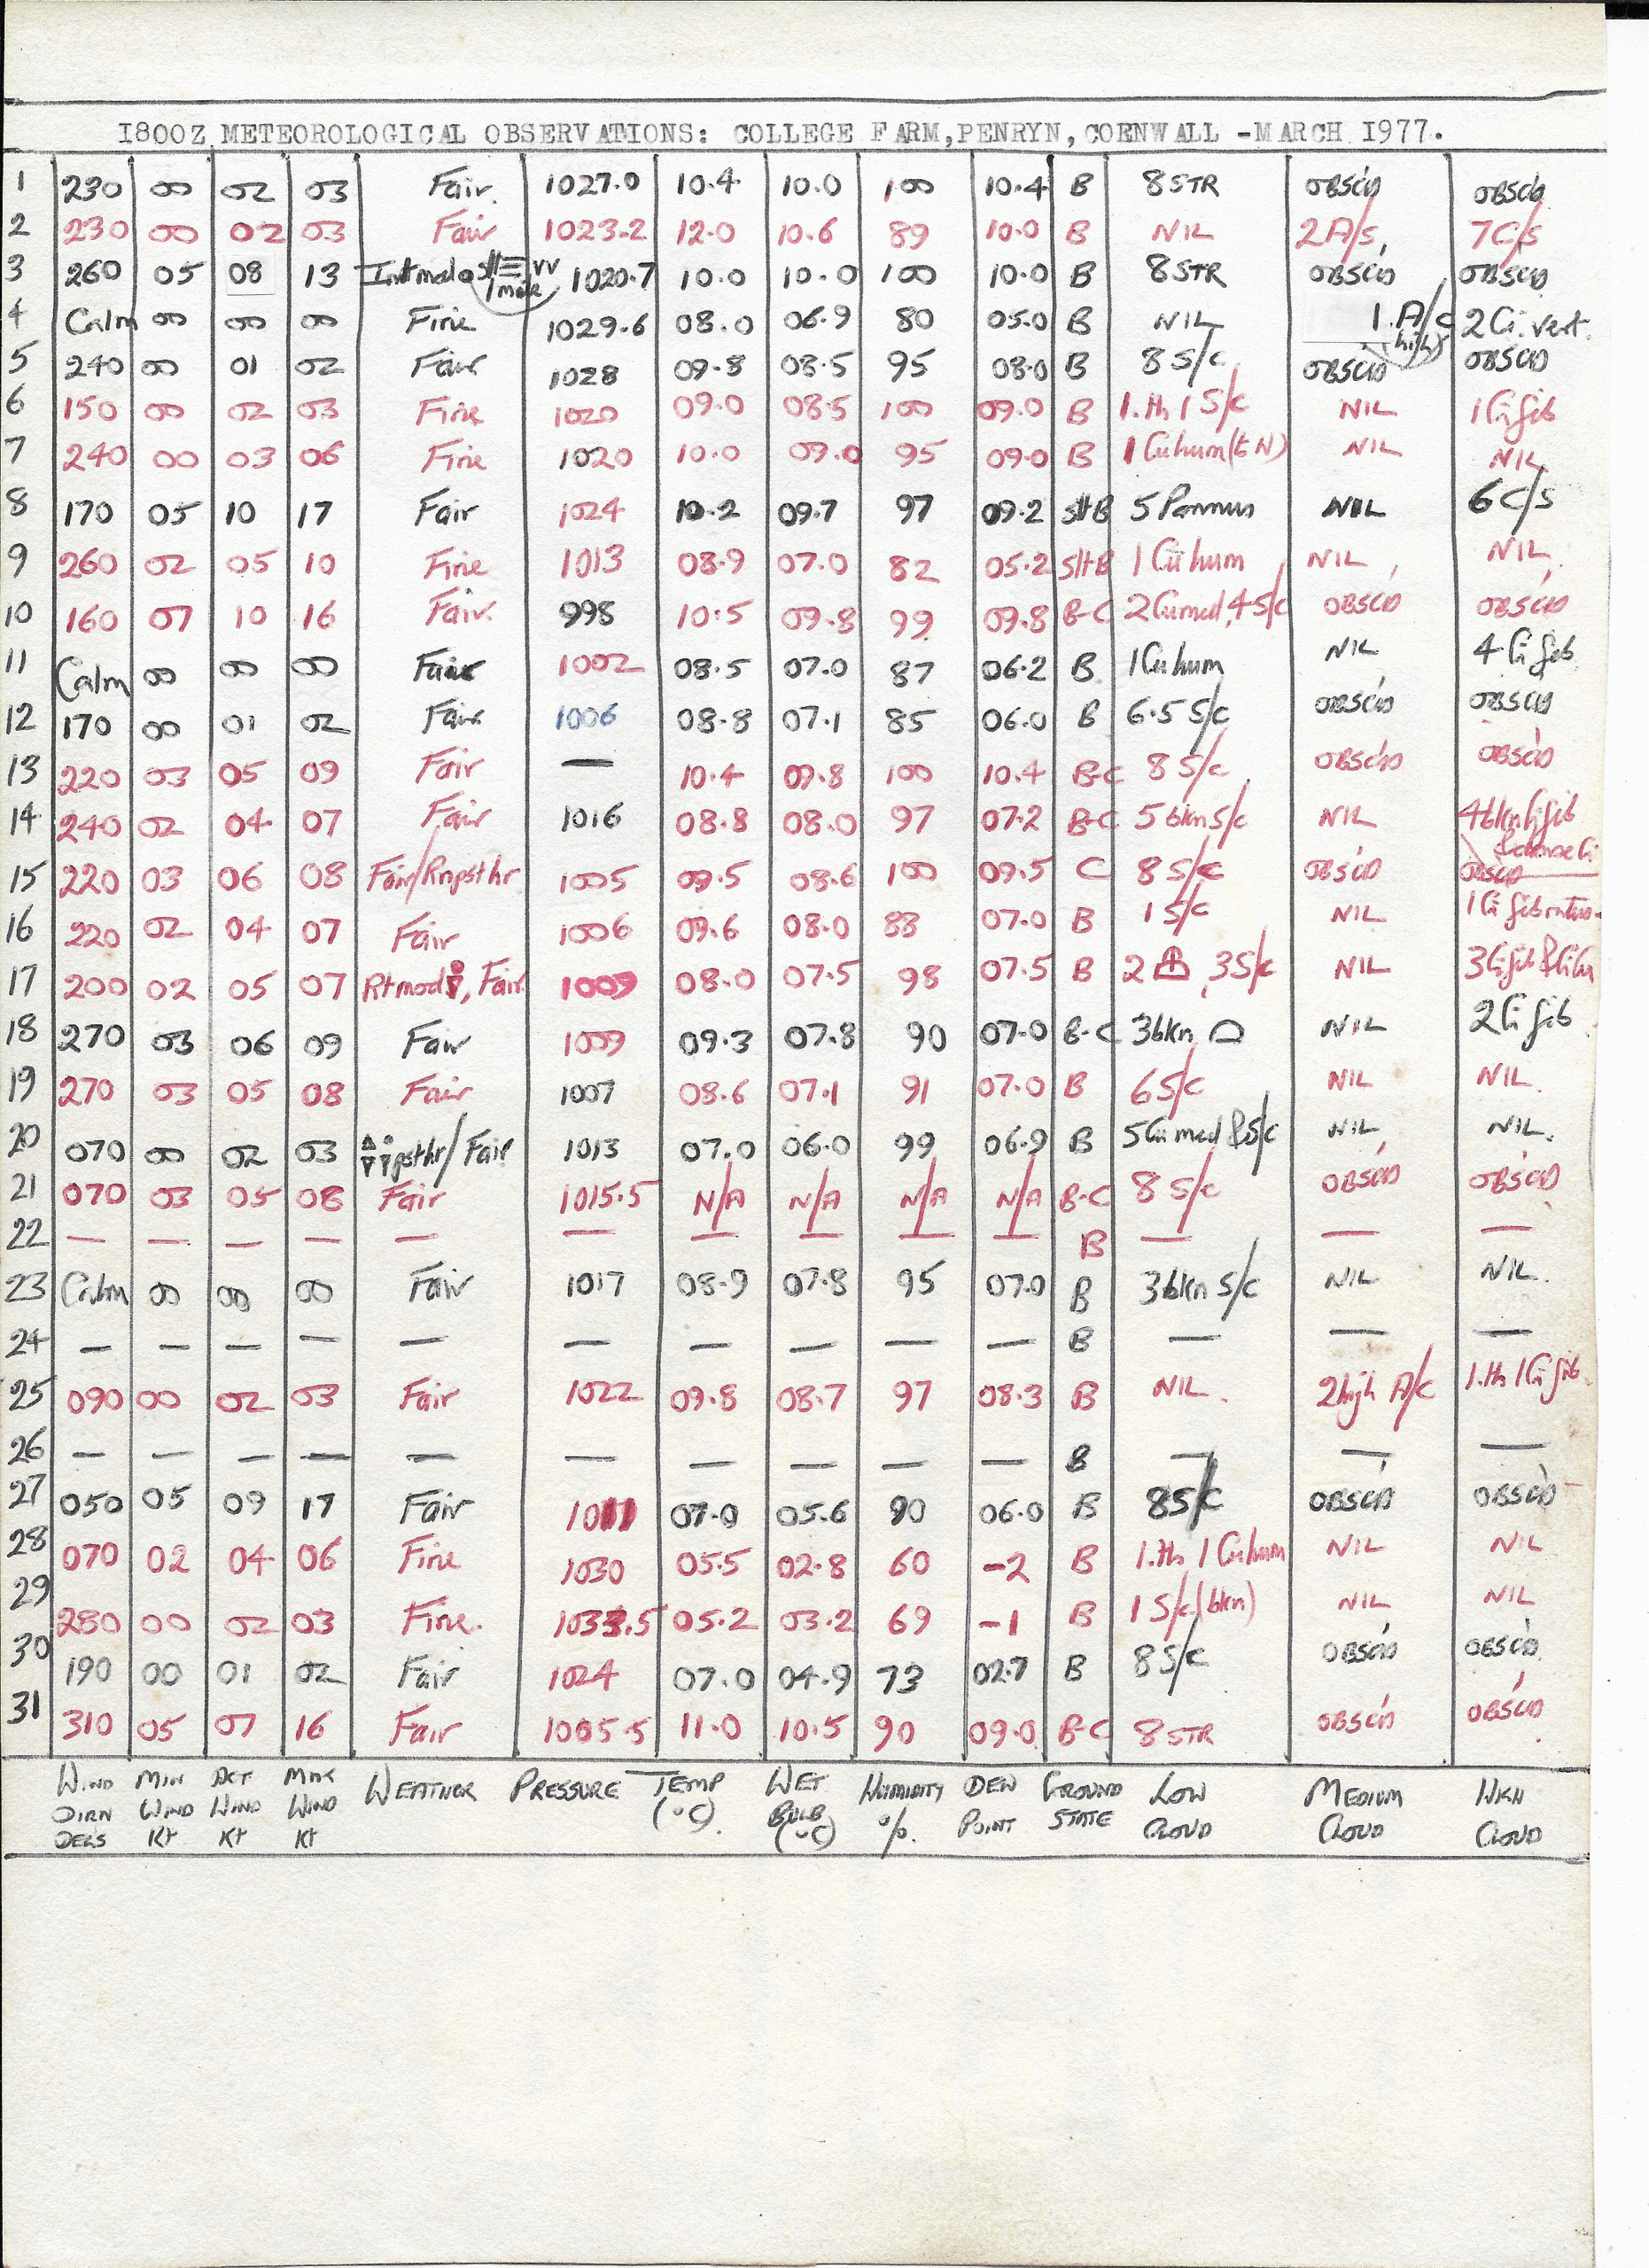 1800Z METEOROLOGICAL OBSERVATIONS: COLLEGE FARM, PENRYN, CORNWALL - MARCH 1977.
1 230 00 02 03 Fair. 1027.0 10.4 10.0 100 10.4 B 8 STR OBSC'D OBSC'D
2 230 00 02 03 Fair 1023.2 12.0 10.6 89 10.0 B NIL 2 A/S, 7 C/S
3 260 05 08 13 1020.7 10.0 10.0 100 10.0 B 8 STR OBSC'D OBSC'D
4 Calm 00 00 00 Fine 1029.6 08.0 06.9 80 05.0 B NIL 1. A/C (high) 2 Ci. vert.
5 240 00 01 02 Fair 1028 09.8 08.5 95 08.0 B 8 S/C OBSC'D OBSC'D
6 150 00 02 03 Fine 1020 09.0 08.5 100 09.0 B 1.th 1 S/C NIL 1 Ci fib
7 240 00 03 06 Fine 1020 10.0 09.0 95 09.0 B 1 Cu hum (to N) NIL NIL
8 170 05 10 17 Fair 1024 10.2 09.7 97 09.2 SltB 5 Pannus NIL 6 C/S
9 260 02 05 10 Fine 1013 08.9 07.0 82 05.2 SltB 1 Cu hum NIL NIL
10 160 07 10 16 Fair. 998 10.5 09.8 99 09.8 B-C 2 Cu med, 4 S/C OBSC'D OBSC'D
11 Calm 00 00 00 Fair 1002 08.5 07.0 87 06.2 B 1 Cu hum NIL 4 Ci fib
12 170 00 01 02 Fair 1006 08.8 07.1 85 06.0 B 6.5 S/C OBSC'D OBSC'D
13 220 03 05 09 Fair — 10.4 09.8 100 10.4 B-C 8 S/C OBSC'D OBSC'D
14 240 02 04 07 Fair 1016 08.8 08.0 97 07.2 B-C 5 bkn S/C NIL 4 bkn Ci fib & dense Ci
15 220 03 06 08 Fair/Rn pst hr 1005 09.5 08.6 100 09.5 C 8 S/C OBSC'D OBSC'D
16 220 02 04 07 Fair 1006 09.6 08.0 88 07.0 B 1 S/C NIL 1 Ci fib
17 200 02 05 07 Fair. 1009 08.0 07.5 98 07.5 B 2 , 3 S/C NIL 3 Ci fib
18 270 03 06 09 Fair 1009 09.3 07.8 90 07.0 B-C 3 bkn NIL 2 Ci fib
19 270 03 05 08 Fair 1007 08.6 07.1 91 07.0 B 6 S/C NIL NIL.
20 070 00 02 03 pst hr/ Fair 1013 07.0 06.0 99 06.9 B 5 Cu med & S/C NIL NIL.
21 070 03 05 08 Fair 1015.5 N/A N/A N/A N/A B-C 8 S/C OBSC'D OBSC'D
22 — — — — — — — — — — B — — —
23 Calm 00 00 00 Fair 1017 08.9 07.8 95 07.0 B 3 bkn S/C NIL NIL.
24 — — — — — — — — — — B — — —
25 090 00 02 03 Fair 1022 09.8 08.7 97 08.3 B NIL. 2 high A/C 1.th 1 Ci fib.
26 — — — — — — — — — — B — — —
27 050 05 09 17 Fair 1011 07.0 05.6 90 06.0 B 8 S/C OBSC'D OBSC'D
28 070 02 04 06 Fine 1030 05.5 02.8 60 -2 B 1.th 1 Cu hum NIL NIL
29 280 00 02 03 Fine. 1033.5 05.2 03.2 69 -1 B 1 S/C (bkn) NIL NIL
30 190 00 01 02 Fair 1024 07.0 04.9 73 02.7 B 8 S/C OBSC'D OBSC'D
31 310 05 07 16 Fair 1005.5 11.0 10.5 90 09.0 B-C 8 STR OBSC'D OBSC'D
WIND MIN ACT MAX WEATHER PRESSURE TEMP WET HUMIDITY DEW GROUND LOW MEDIUM HIGH
DIRN WIND WIND WIND (°C) BULB %. POINT STATE CLOUD CLOUD CLOUD
DEGS Kt Kt Kt (°C)